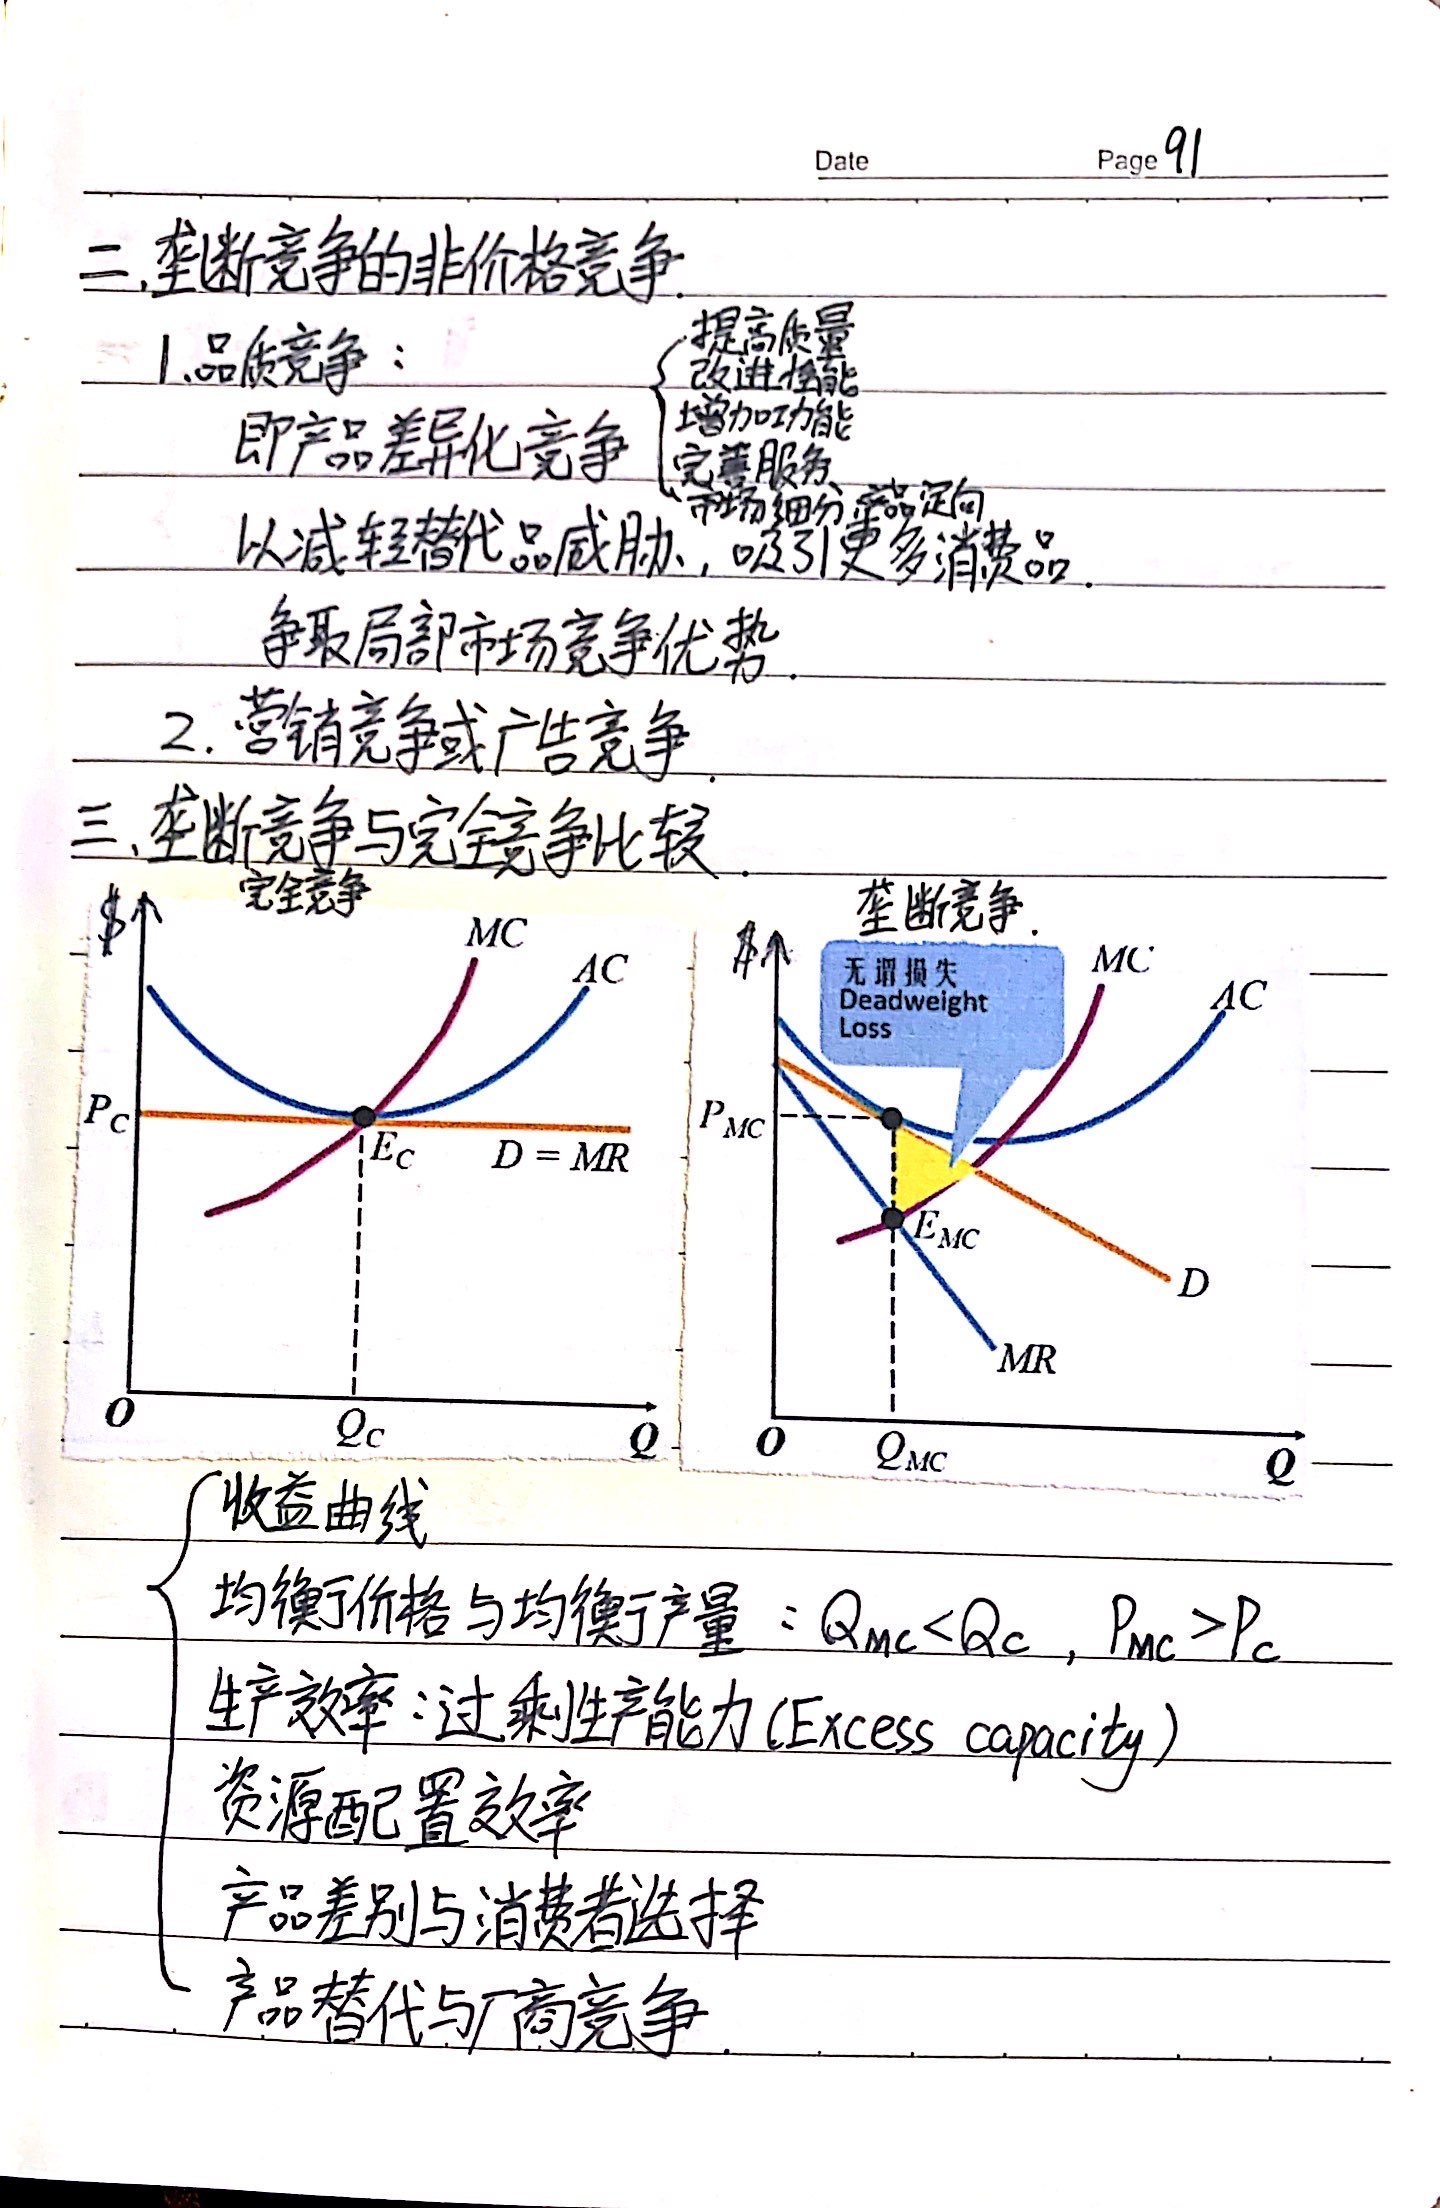 Date Page 91
二、垄断竞争的非价格竞争.
1.品质竞争：
提高质量
改进性能
增加功能
即产品差异化竞争
完善服务
市场细分 产品定向
以减轻替代品威胁，吸引更多消费品.
争取局部市场竞争优势.
2. 营销竞争或广告竞争.
三、垄断竞争与完全竞争比较.
完全竞争
$
MC
AC
PC
EC
D = MR
O
QC
Q
垄断竞争.
$
无谓损失
Deadweight
Loss
MC
AC
PMC
EMC
D
MR
O
QMC
Q
收益曲线
均衡价格与均衡产量：QMC<QC , PMC>PC
生产效率：过剩生产能力(Excess capacity)
资源配置效率
产品差别与消费者选择
产品替代与厂商竞争.